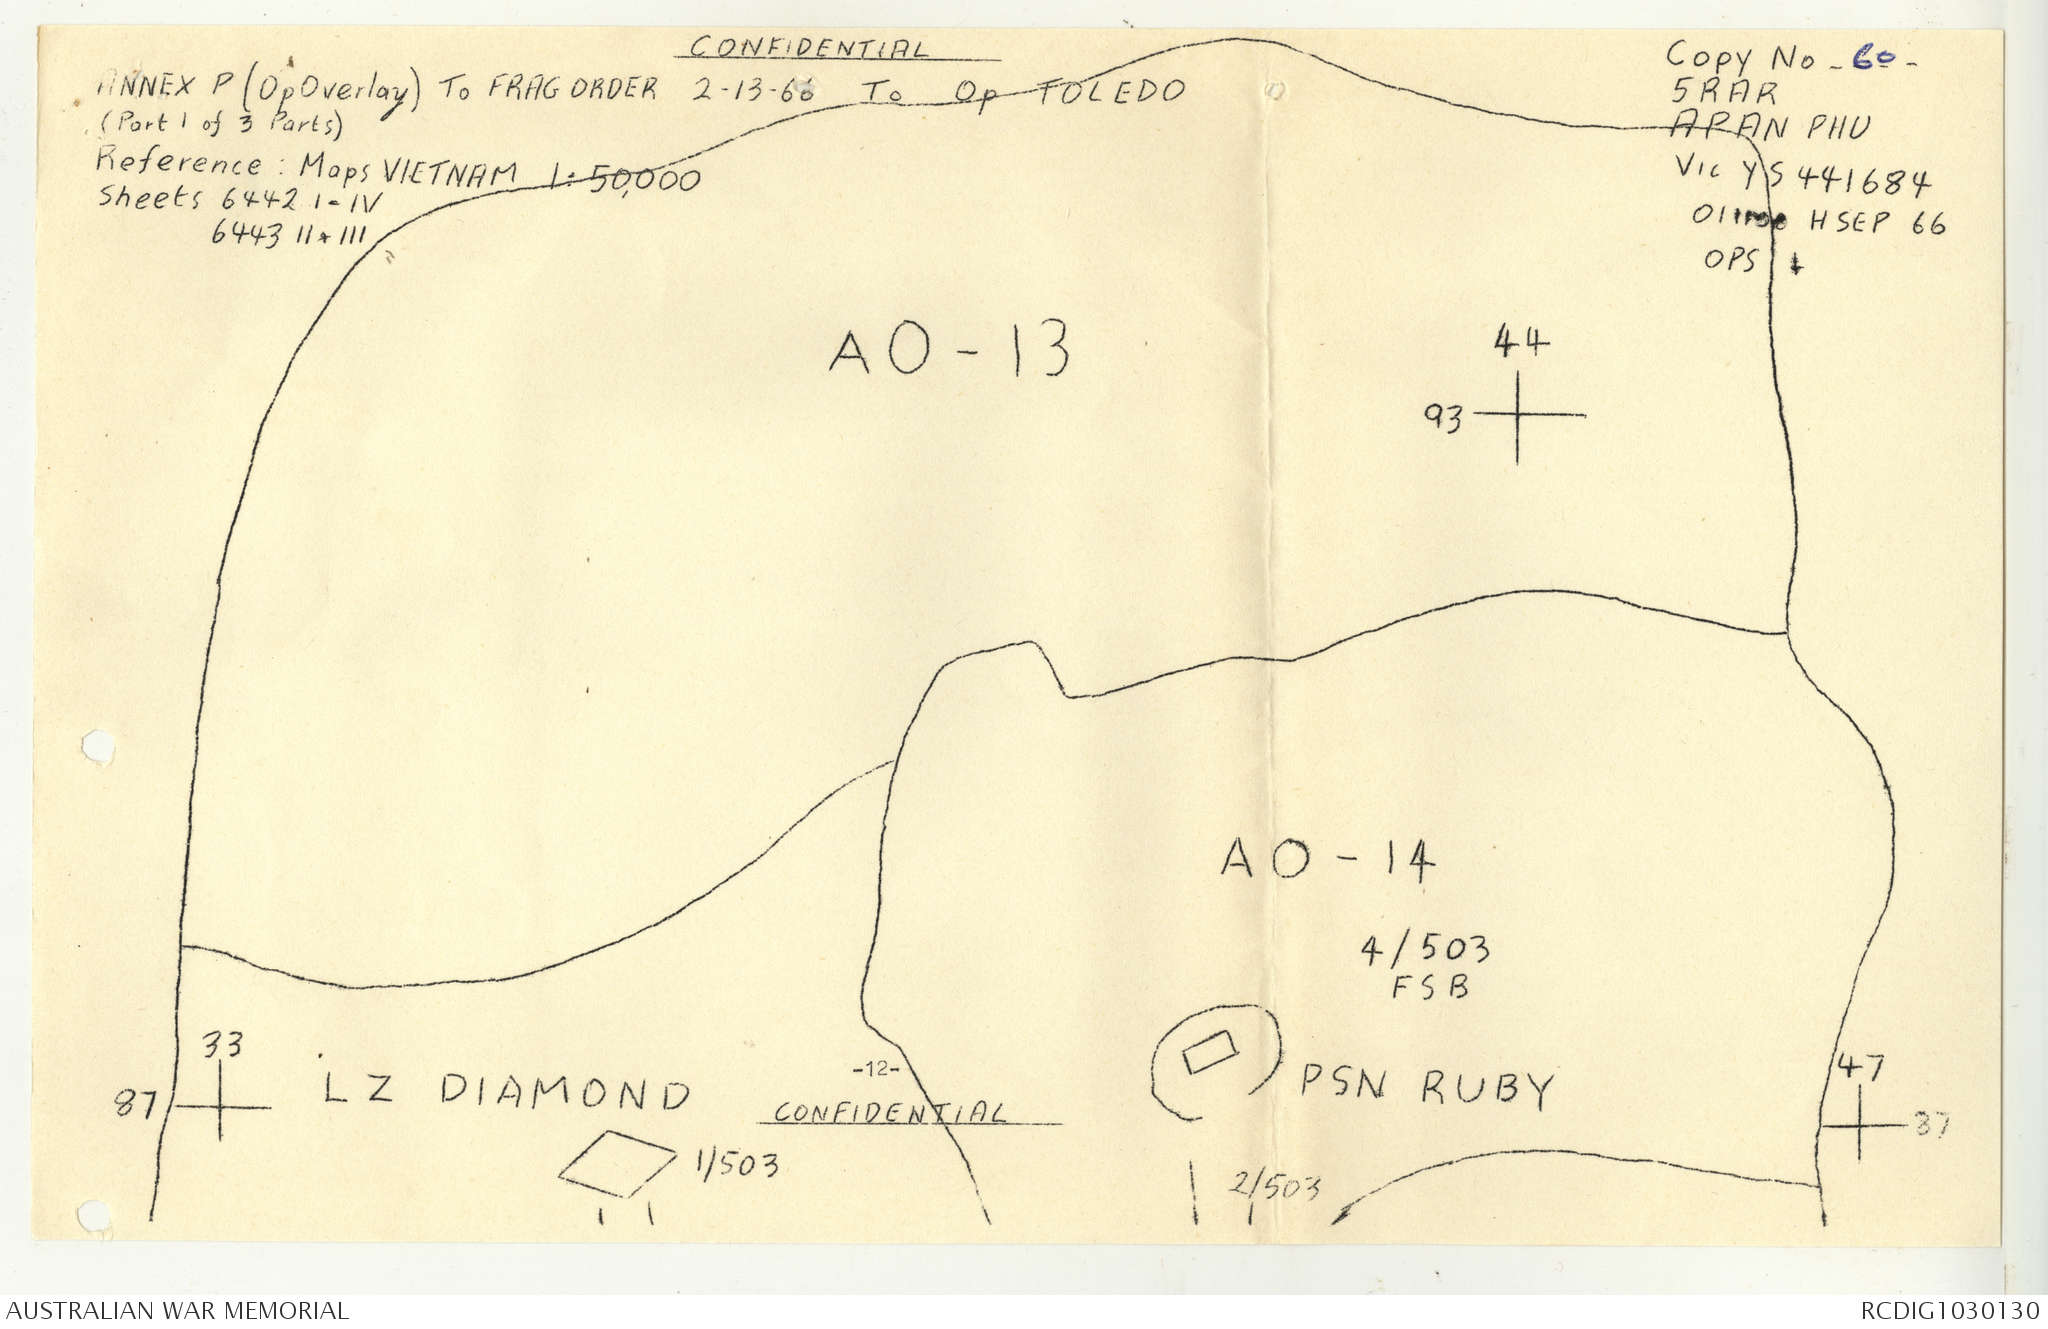 CONFIDENTIAL
ANNEX P (Op Overlay) To FRAG ORDER 2-13-66 To Op TOLEDO
(Part 1 of 3 Parts)
Reference: Maps VIETNAM 1:50,000
Sheets 6442 I-IV
6443 II + III
Copy No - 60 -
5RAR
APAN PHU
Vic YS 441684
H SEP 66
OPS
AO-13
44
93
AO-14
4/503
FSB
33
87
LZ DIAMOND
-12-
CONFIDENTIAL
PSN RUBY
47
87
1/503
2/503
AUSTRALIAN WAR MEMORIAL
RCDIG1030130